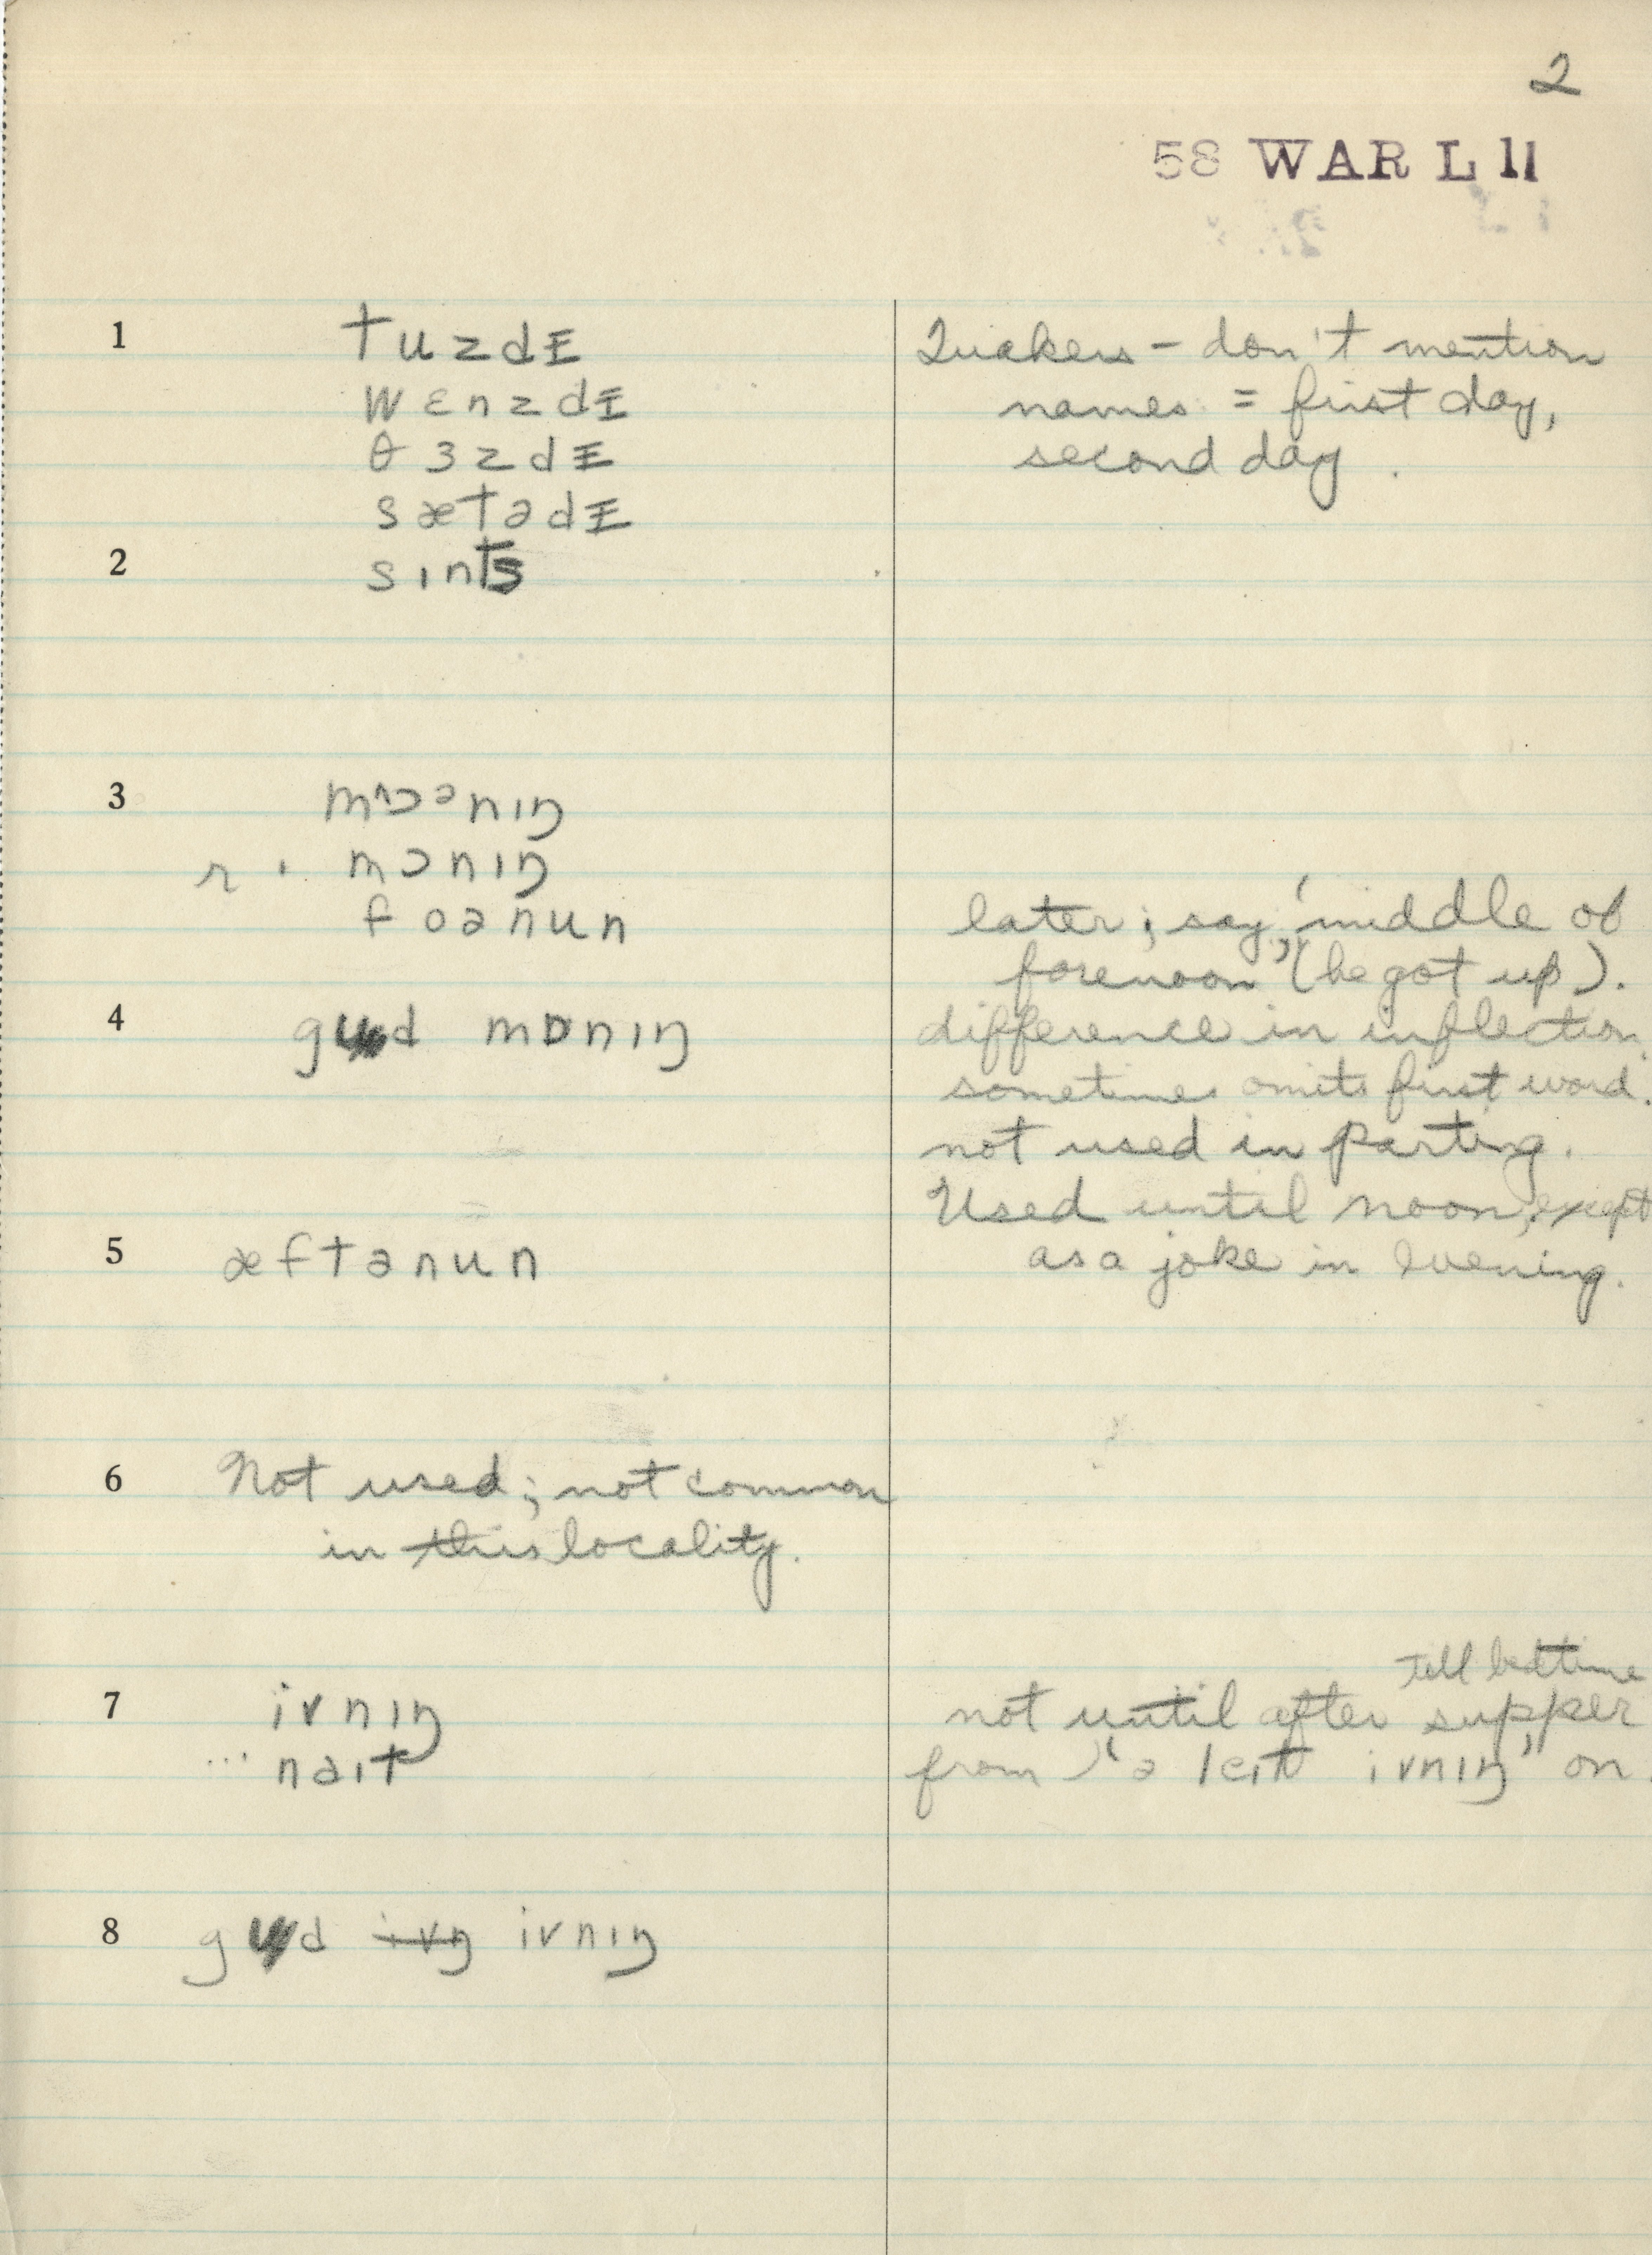 2
58 WAR L 11
1 tuzdɪ
wɛnzdɪ
θɜzdɪ
sætədɪ
Quakers – don't mention
names = first day,
second day.
2 sɪnts
3 mɒɔənɪŋ
r · mɔnɪŋ
foənun
later; say, 'middle of
forenoon,' (he got up).
4 gud mɒnɪŋ
difference in inflection.
sometimes omits first word.
not used in parting.
Used until noon, except
as a joke in evening.
5 æftənun
6 Not used; not common
in this locality.
7 ivnɪŋ
... naɪt
till bedtime
not until after supper
from 'ə leɪt ivnɪŋ' on.
8 gud ivŋ ivnɪŋ